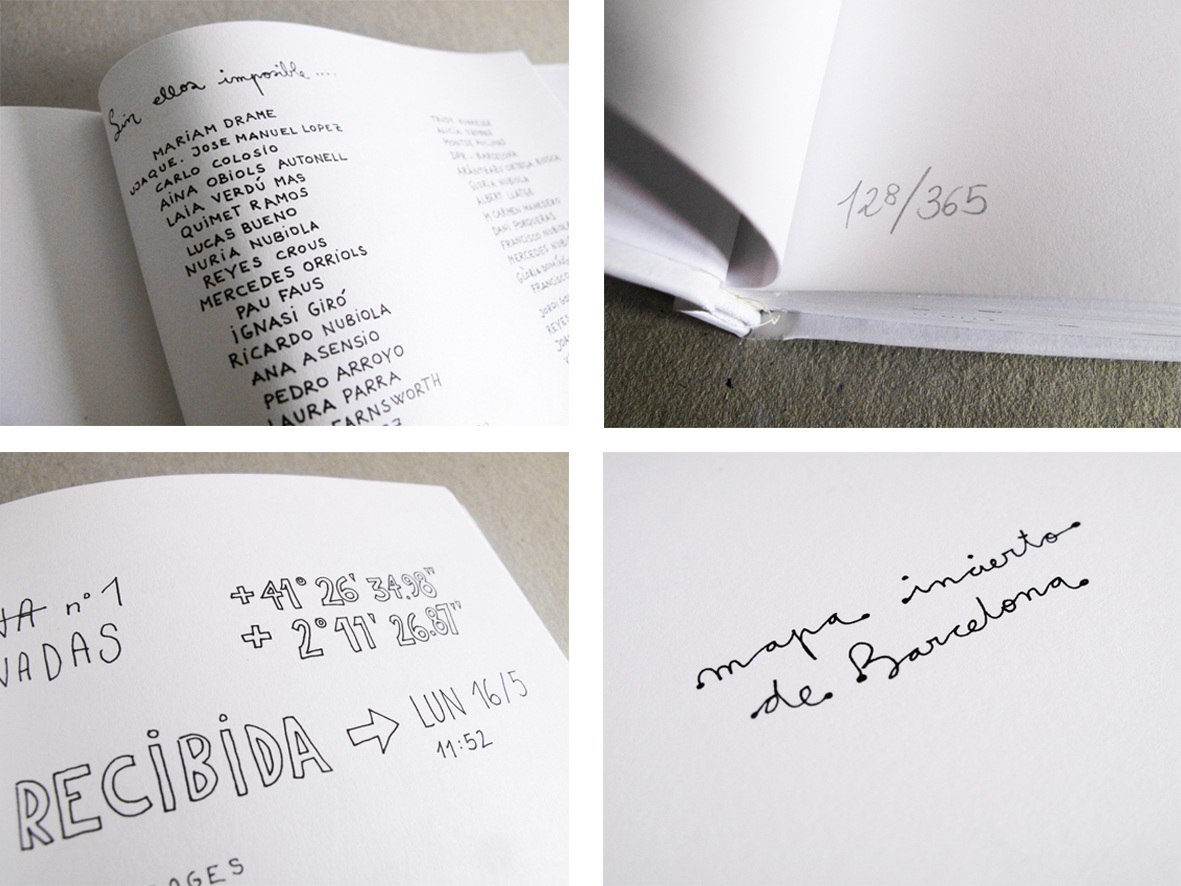 Sin ellos imposible....
MARIAM DRAME
JAQUE. JOSE MANUEL LOPEZ
CARLO COLOSIO
AINA OBIOLS AUTONELL
LAIA VERDÚ MAS
QUIMET RAMOS
LUCAS BUENO
NURIA NUBIOLA
REYES CROUS
MERCEDES ORRIOLS
PAU FAUS
IGNASI GIRÓ
RICARDO NUBIOLA
ANA ASENSIO
PEDRO ARROYO
LAURA PARRA
FARNSWORTH
DPR - BARCELONA
ARÁNTZAZU ORTEGA
GLORIA NUBIOLA
ALBERT LLATGE
M CARMEN MANEDERO
DANI PORQUERAS
FRANCISCO
MERCEDES
FRANCISCO
128/365
nº 1
VADAS
+41° 26' 34.98"
+ 2° 11' 26.87"
RECIBIDA → LUN 16/5
11:52
AGES
mapa incierto
de Barcelona